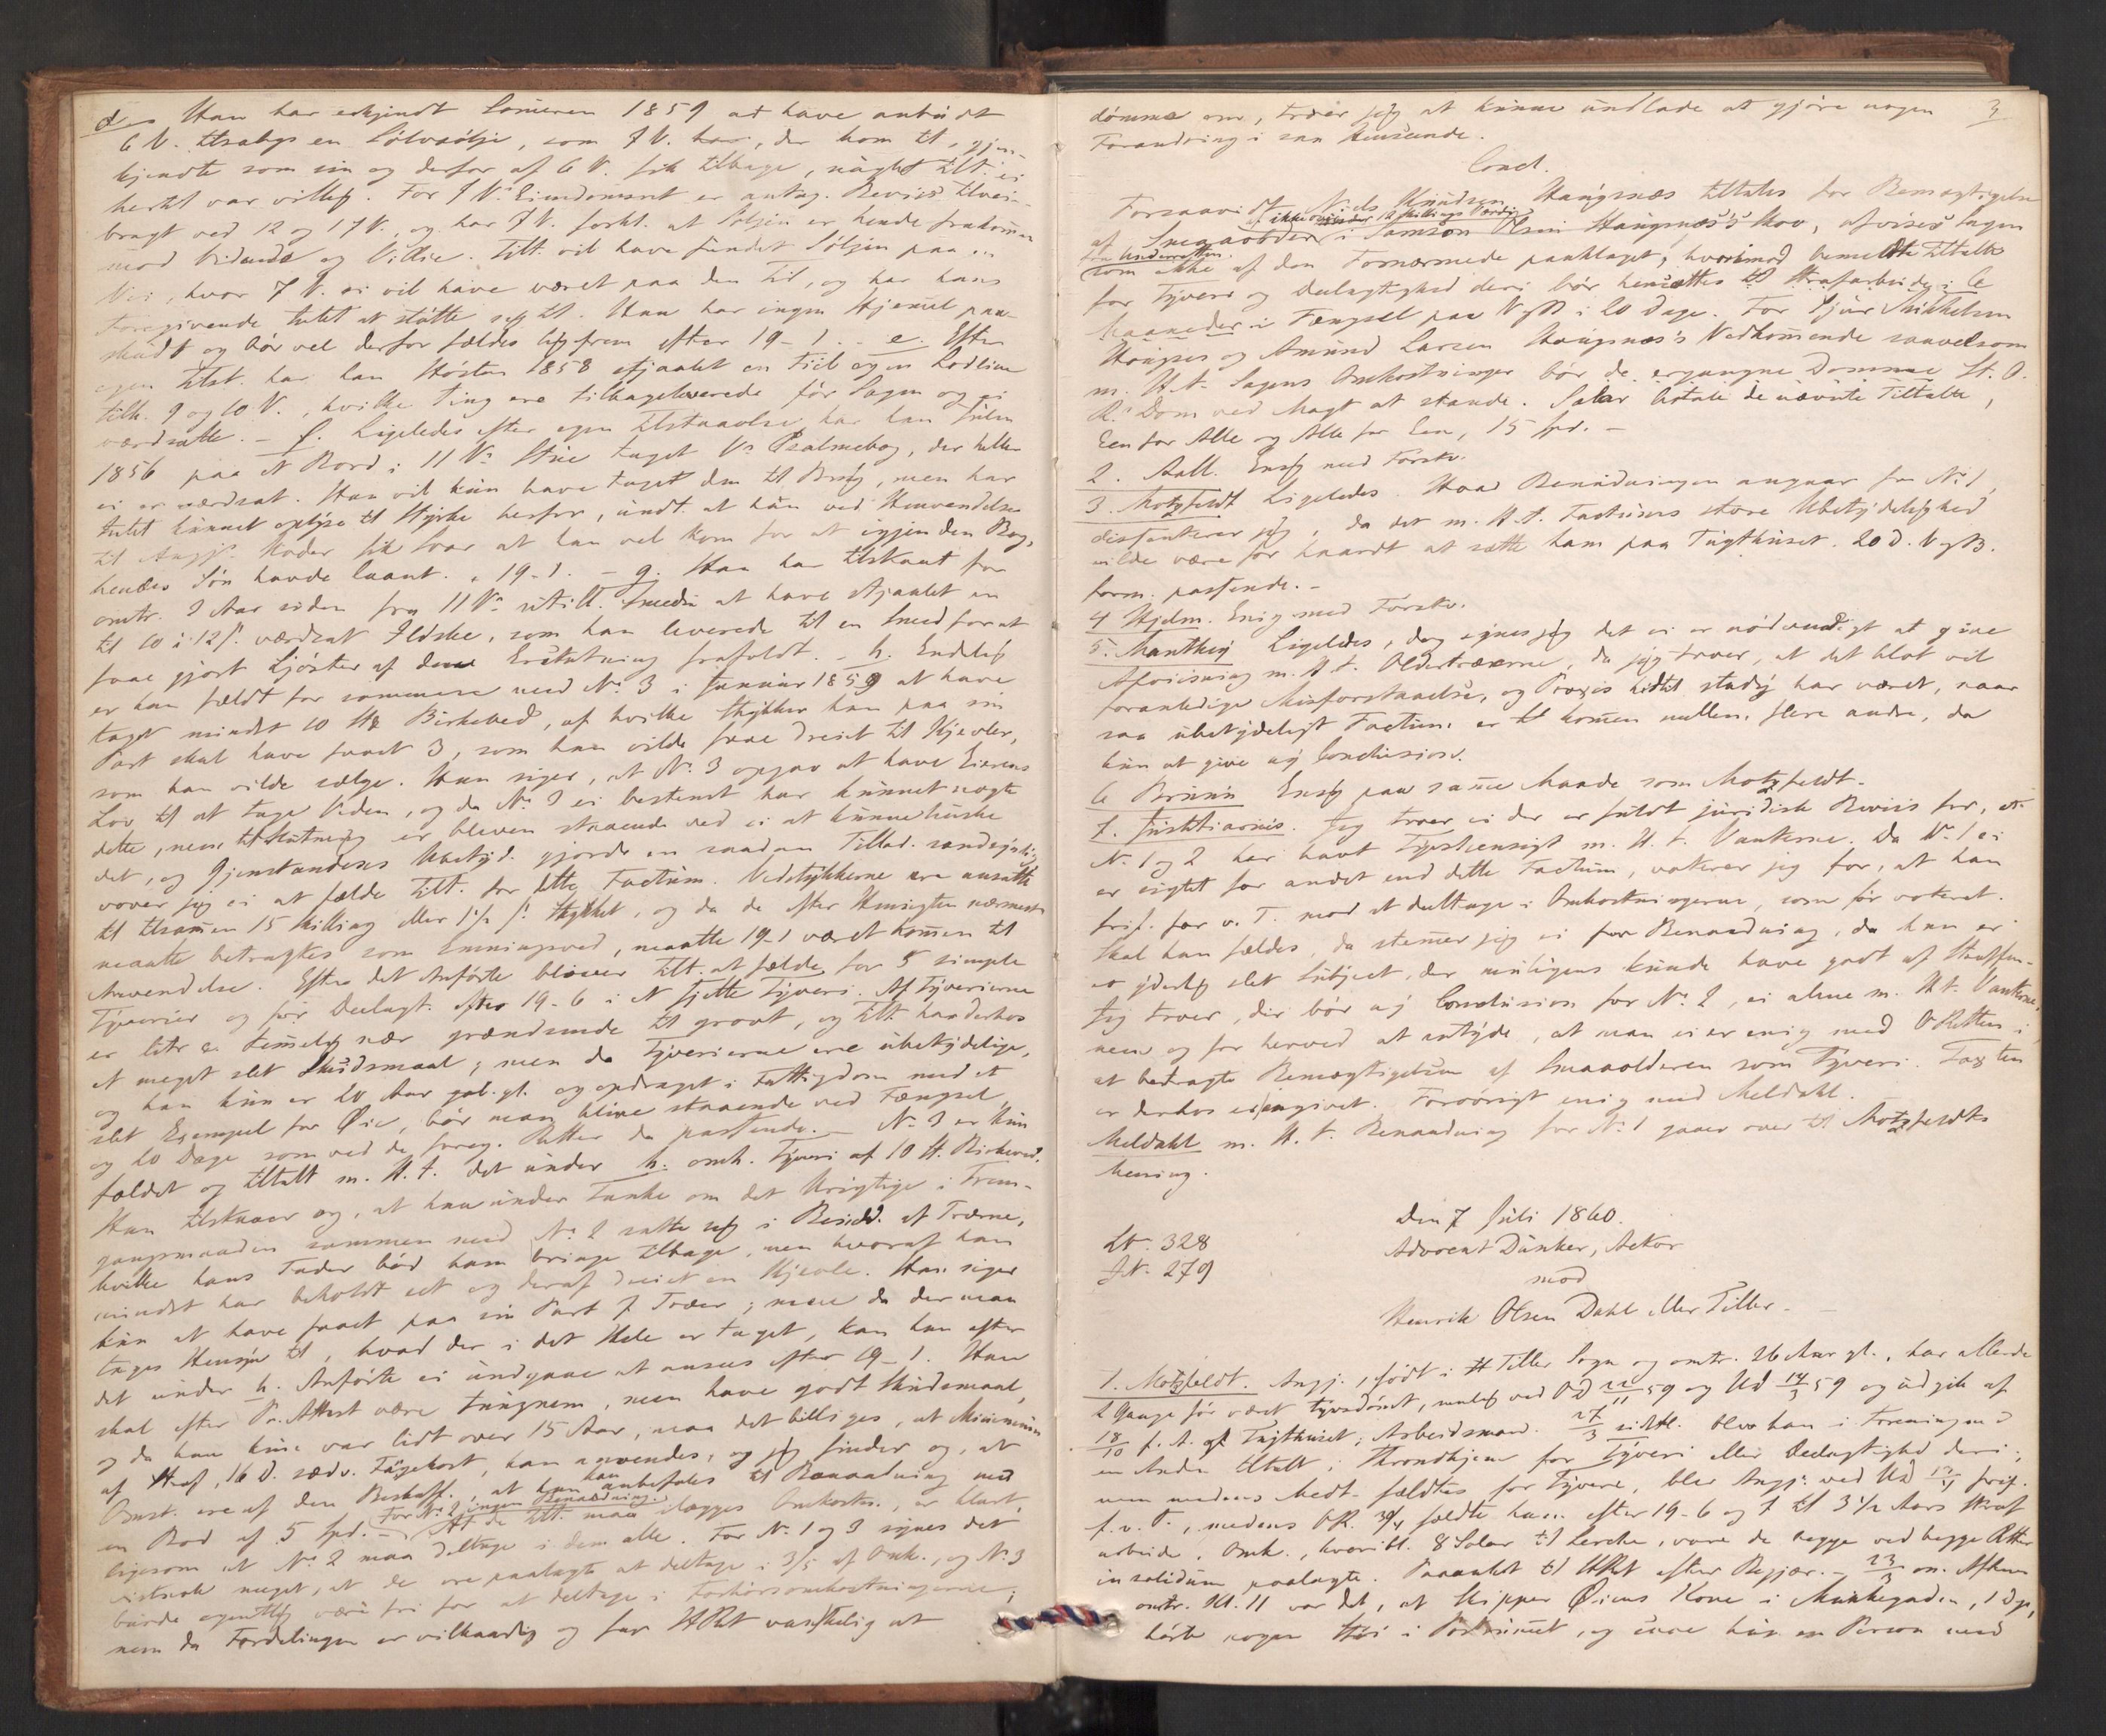 d. Han har erkjendt Someren 1859 at have anbudt
6 V. tilsalgs en Sølvsølje, som 7 V. har, der kom til, gjen-
kjendte som sin og derfor af 6 V. fik tilbage, nagtet Tilt. ei
hertil var villig. For 7 V's Eiendomsret er antag. Beviis tilvei-
bragt ved 12 og 17 V., og har 7 V. forkl. at Søljen er hende frakommen
mod Vidende og Villie. Tilt. vil have fundet Søljen paa en
Vei, hvor 7 V. ei vil have været paa den Tid, og har hans
Foregivende intet at støtte sig til. Han har ingen Hjemmel paa-
skudt og bør vel derfor fældes ligefrem efter 19-1. - e. Efter
egen Tilst. har han Høsten 1858 stjaalet en Fiil og en Lodline
tilh. 9 og 10 V., hvilke Ting ere tilbageleverede før Sagen og ei
værdsatte. - f. Ligeledes efter egen Tilstaaelse har han Julen
1856 paa et Bord i 11 V's Stue taget V's Psalmebog, der heller
ei er værdsat. Han vil kun have taget den til Brug, men har
intet kunnet oplyse til Styrke herfor, undt. at han ved Henvendelse
til Angj's Moder fik Svar at han vel kom for at igjen den Bog,
hendes Søn havde laant. 19-1. - g. Han har tilstaaet for
omtr. 3 Aar siden fra 11 V's Smedie at have stjaalet en
til 10 à 12 ß værdsat Ildske, som han leverede til en Smed for at
faae gjort Ljøster af den. Erstatning frafaldt. - h. Endelig
er han fældt for sammen med No. 3 i Januar 1859 at have
taget mindst 10 St. Birkeved, af hvilke Stykker han paa sin
Part skal have faaet 3, som han vilde faae dreiet til Kjevler,
som han vilde sælge. Han siger, at No. 3 opgav at have Eierens
Lov til at tage Veden, og da No. 3 ei bestemt har kunnet nægte
dette, men tilslutning er bleven staaende ved ei at kunne huske
det, og Gjenstandens Ubetyd. gjorde en saadan Tillad. sandsynlig,
vover jeg ei at fælde Tilt. for dette Factum. Vedstykkerne ere ansatte
til tilsammen 15 Skilling eller 1½ ß Stykket, og da de efter Hensigten nærmest
maatte betragtes som Emningsved, maatte 19-1 været kommen til
Anvendelse. Efter det Anførte bliver Tilt. at fælde for 5 simple
Tyverier og for Deelagt. efter 19-6 i et sjette Tyveri. Af Tyverierne
er litr. a temmelig nær grændsende til grovt, og Tilt. har derhos
et meget slet Skudsmaal; men da Tyverierne ere ubetydelige,
og han kun er 20 Aar gl. og opdraget i Fattigdom med et
slet Exempel for Øie, bør man blive staaende ved Fængsel
og 20 Dage som ved de foreg. Retter da passende. - No. 3 er kun
fældet og tiltalt m. H. t. det under h. omh. Tyveri af 10 St. Birkeved.
Han tilstaaer og, at han under Tanke om det Urigtige i Frem-
gangsmaaden sammen med No. 2 satte sig i Besidd. af Træerne,
hvilke hans Fader bød ham bringe tilbage, men hvoraf han
mindst har beholdt eet og deraf dreiet en Kjevle. Han siger
kun at have faaet paa sin Part 7 Træer; men da der maa
tages Hensyn til, hvad der i det Hele er taget, kan han efter
det under h. Anførte ei undgaae at ansees efter 19-1. Han
skal efter Pr. Attest være tungnem, men have godt Skudsmaal,
og da han kun var lidt over 15 Aar, maa det billiges, at Minimum
af Straf, 16 D. sædv. Fangekost, kan anvendes, og jeg finder og, at
Omst. ere af den Beskaff., at han kan anbefales til Benaadning med
en Bod af 5 Spd. - For No. 2 ingen Benaadning. At de Tilt. maa ilægges Omkostn., er klart,
ligesom at No. 2 maa deltage i dem alle. For No. 1 og 3 synes det
vistnok meget, at de ere paalagte at deltage i 3/5 af Omk., og No. 3
burde egentlig være fri for at deltage i Forhørsomkostningerne;
men da Fordelingen er vilkaarlig og for HRet vanskelig at
dømme om, troer jeg at kunne undlade at gjøre nogen 3
Forandring i saa Henseende.
Concl.
Forsaavidt Niels Knudsen Haugsnæs tiltales for Bemægtigelse
af Smaaolder, ikke over 12 Skillings Værdi, i Samson Olsen Haugsnæs's Skov, afvises Sagen
fra Underretten,
som ikke af den Fornærmede paaklaget, hvorimod bemeldte Tiltalte
for Tyveri og Deelagtighed deri bør hensættes til Strafarbeide i 6
Maaneder i Fængsel paa V og B i 20 Dage. For Sjur Mikkelsen
Haugses og Amund Larsen Haugsnæs's Vedkommende saavelsom
m. H. t. Sagens Omkostninger bør de ergangne Domme St. O.
R's Dom ved Magt at stande. Salær betale de nævnte Tiltalte,
Een for Alle og Alle for Een, 15 Spd. -
2. Aall. Enig med Førstv.
3. Motzfeldt Ligeledes. Hvad Benaadningen angaar for No. 1,
dissenterer jeg, da det m. H. t. Factums store Ubetydelighed
vilde være for haardt at sætte ham paa Tugthuset. 20 D. V og B.
form. passende. -
4 Hjelm. Enig med Førstv.
5. Manthey Ligeledes, dog synes jeg det ei er nødvendigt at give
Afviisning m. H. t. Oldertræerne, da jeg troer, at det blot vil
foranledige Misforstaaelse, og Praxis hidtil stadig har været, naar
saa ubetydeligt Factum er til kommen mellem flere andre, da
kun at give ny Conclusion.
6 Bruun Enig paa samme Maade som Motzfeldt.
7. Justitiarius. Jeg troer ei der er fuldt juridisk Beviis for, at
No. 1 og 2 har havt Tyvshensigt m. H. t. Vanterne. Da No. 1 ei
er sigtet for andet end dette Factum, voterer jeg for, at han
frif. for v. T. mod at deeltage i Omkostningerne, som før voteret.
Skal han fældes, da stemmer jeg ei for Benaadning, da han er
et yderlig slet Subject, der muligens kunde have godt af Straffen.
Jeg troer, der bør ny Conclusion for No. 2, ei alene m. H. t. Vanterne,
men og for herved at antyde, at man ei er enig med ORetten i
at betragte Bemægtigelsen af Smaaolderen som Tyveri. Taxten
er derhos ei angivet. Forøvrigt enig med Meldahl.
Meldahl m. H. t. Benaadning for No. 1 gaaer over til Motzfeldts
Mening.
Den 7 Juli 1860.
Lb. 328
Advocat Dunker, Actor
J.N. 279
mod
Henrik Olsen Dahl eller Tiller. -
1. Motzfeldt. Angj., født i Tiller Sogn og omtr. 26 Aar gl., har allerede
2 Gange før været tyvsdømt, nemlig ved OD 22/11 59 og Ud 14/3 59 og udgik af
18/10 f. A. af Tugthuset; Arbeidsmand. 27/3 sidstl. blev han i Forening med
en Anden tiltalt i Throndhjem for Tyveri eller Deelagtighed deri;
men medens Medt. fældtes for Tyveri, blev Angj. ved UD 12/4 frif.
f. v. T., medens OR. 30/4 fældte ham efter 19-6 og 7 til 3½ Aars Straf-
arbeide. Omk., hvoribl. 8 Salær til Lerche, vare de begge ved begge Retter
in solidum paalagte. Paaanket til HRet efter Begjær. - 23/3 om Aftenen
omtr. Kl. 11 var det, at Skipper Øiens Kone i Munkegaden, 1 Dp,
hørte nogen Støi i Baxrummet, og saae hun en Person med